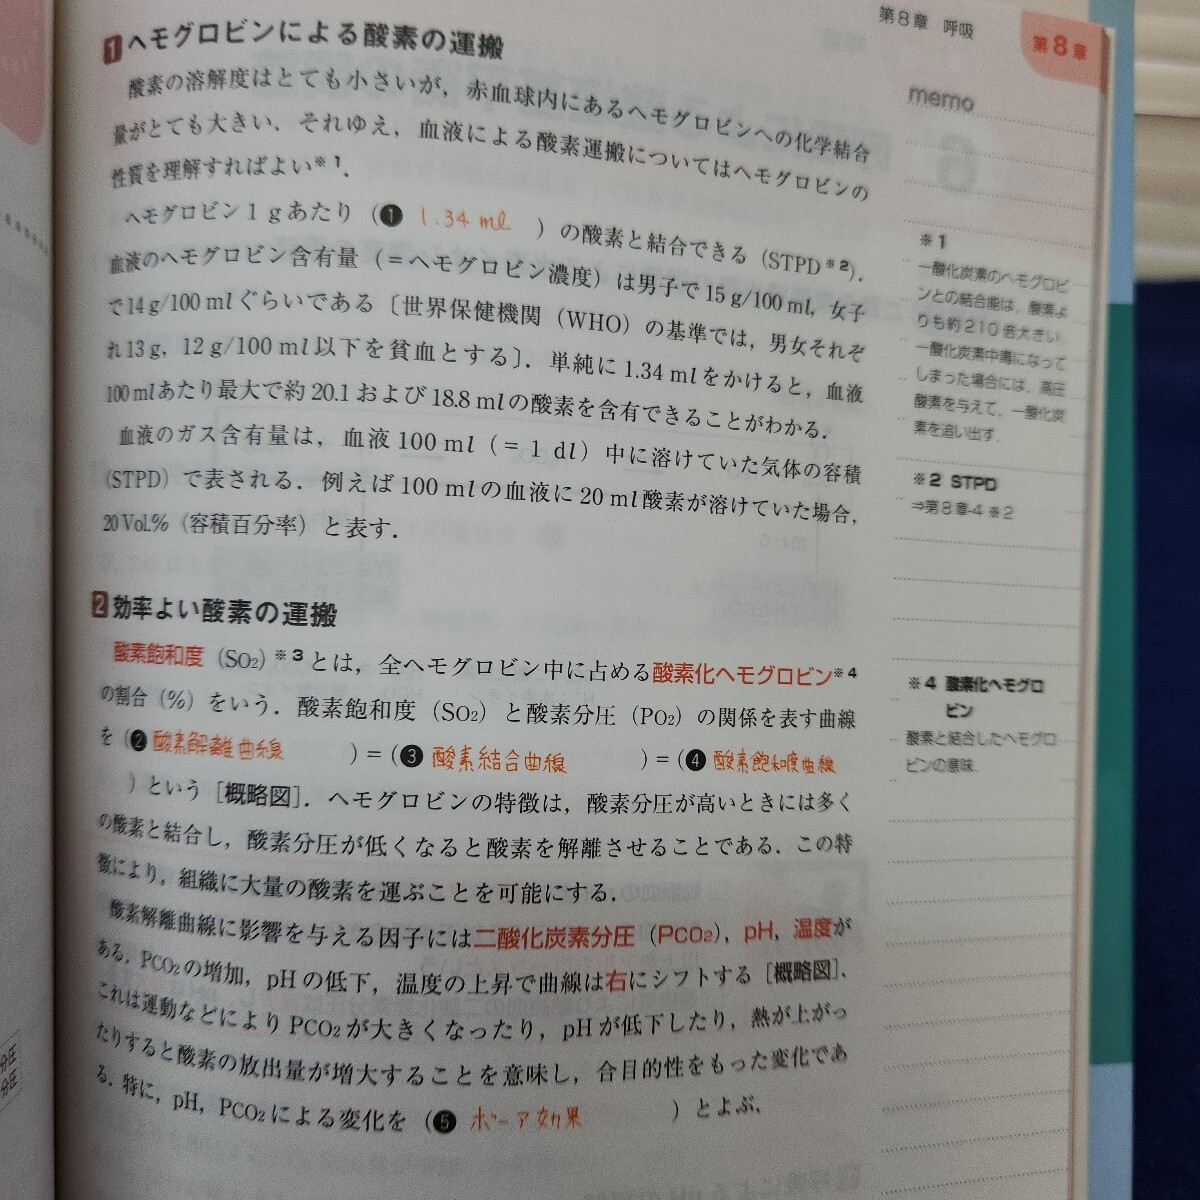 第8章 呼吸
第8章
1 ヘモグロビンによる酸素の運搬
酸素の溶解度はとても小さいが，赤血球内にあるヘモグロビンへの化学結合
量がとても大きい．それゆえ，血液による酸素運搬についてはヘモグロビンの
性質を理解すればよい※1．
ヘモグロビン1gあたり（❶ 1.34ml ）の酸素と結合できる（STPD※2）．
血液のヘモグロビン含有量（＝ヘモグロビン濃度）は男子で15 g/100 ml，女子
で14 g/100 mlぐらいである〔世界保健機関（WHO）の基準では，男女それぞ
れ13 g，12 g/100 ml以下を貧血とする〕．単純に1.34 mlをかけると，血液
100 mlあたり最大で約20.1および18.8 mlの酸素を含有できることがわかる．
血液のガス含有量は，血液100 ml（＝1 dl）中に溶けていた気体の容積
（STPD）で表される．例えば100 mlの血液に20 ml酸素が溶けていた場合，
20 Vol.%（容積百分率）と表す．
2 効率よい酸素の運搬
酸素飽和度（SO2）※3とは，全ヘモグロビン中に占める酸素化ヘモグロビン※4
の割合（%）をいう．酸素飽和度（SO2）と酸素分圧（PO2）の関係を表す曲線
を（❷ 酸素解離曲線 ）＝（❸ 酸素結合曲線 ）＝（❹ 酸素飽和度曲線
）という［概略図］．ヘモグロビンの特徴は，酸素分圧が高いときには多く
の酸素と結合し，酸素分圧が低くなると酸素を解離させることである．この特
徴により，組織に大量の酸素を運ぶことを可能にする．
酸素解離曲線に影響を与える因子には二酸化炭素分圧（PCO2），pH，温度が
ある．PCO2の増加，pHの低下，温度の上昇で曲線は右にシフトする［概略図］．
これは運動などによりPCO2が大きくなったり，pHが低下したり，熱が上がっ
たりすると酸素の放出量が増大することを意味し，合目的性をもった変化であ
る．特に，pH，PCO2による変化を（❺ ボーア効果 ）とよぶ．
memo
※1
一酸化炭素のヘモグロビ
ンとの結合能は，酸素よ
りも約210倍大きい．
一酸化炭素中毒になって
しまった場合には，高圧
酸素を与えて，一酸化炭
素を追い出す．
※2 STPD
⇒第8章-4 ※2
※4 酸素化ヘモグロ
ビン
酸素と結合したヘモグロ
ビンの意味．
分圧
分圧